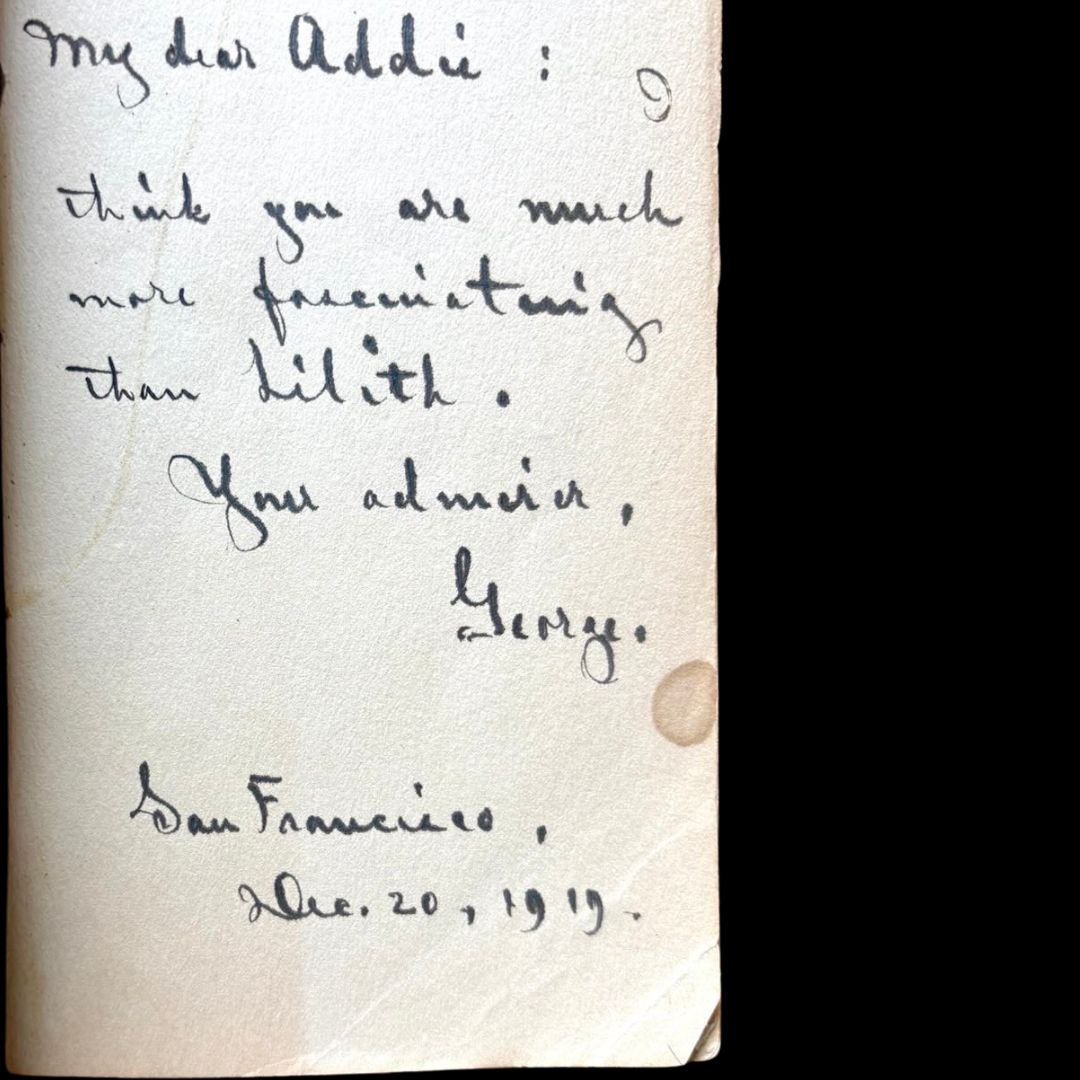 My dear Addie :
I
think you are much
more fascinating
than Lilith.
Your admirer,
George.
San Francisco,
Dec. 20, 1919.